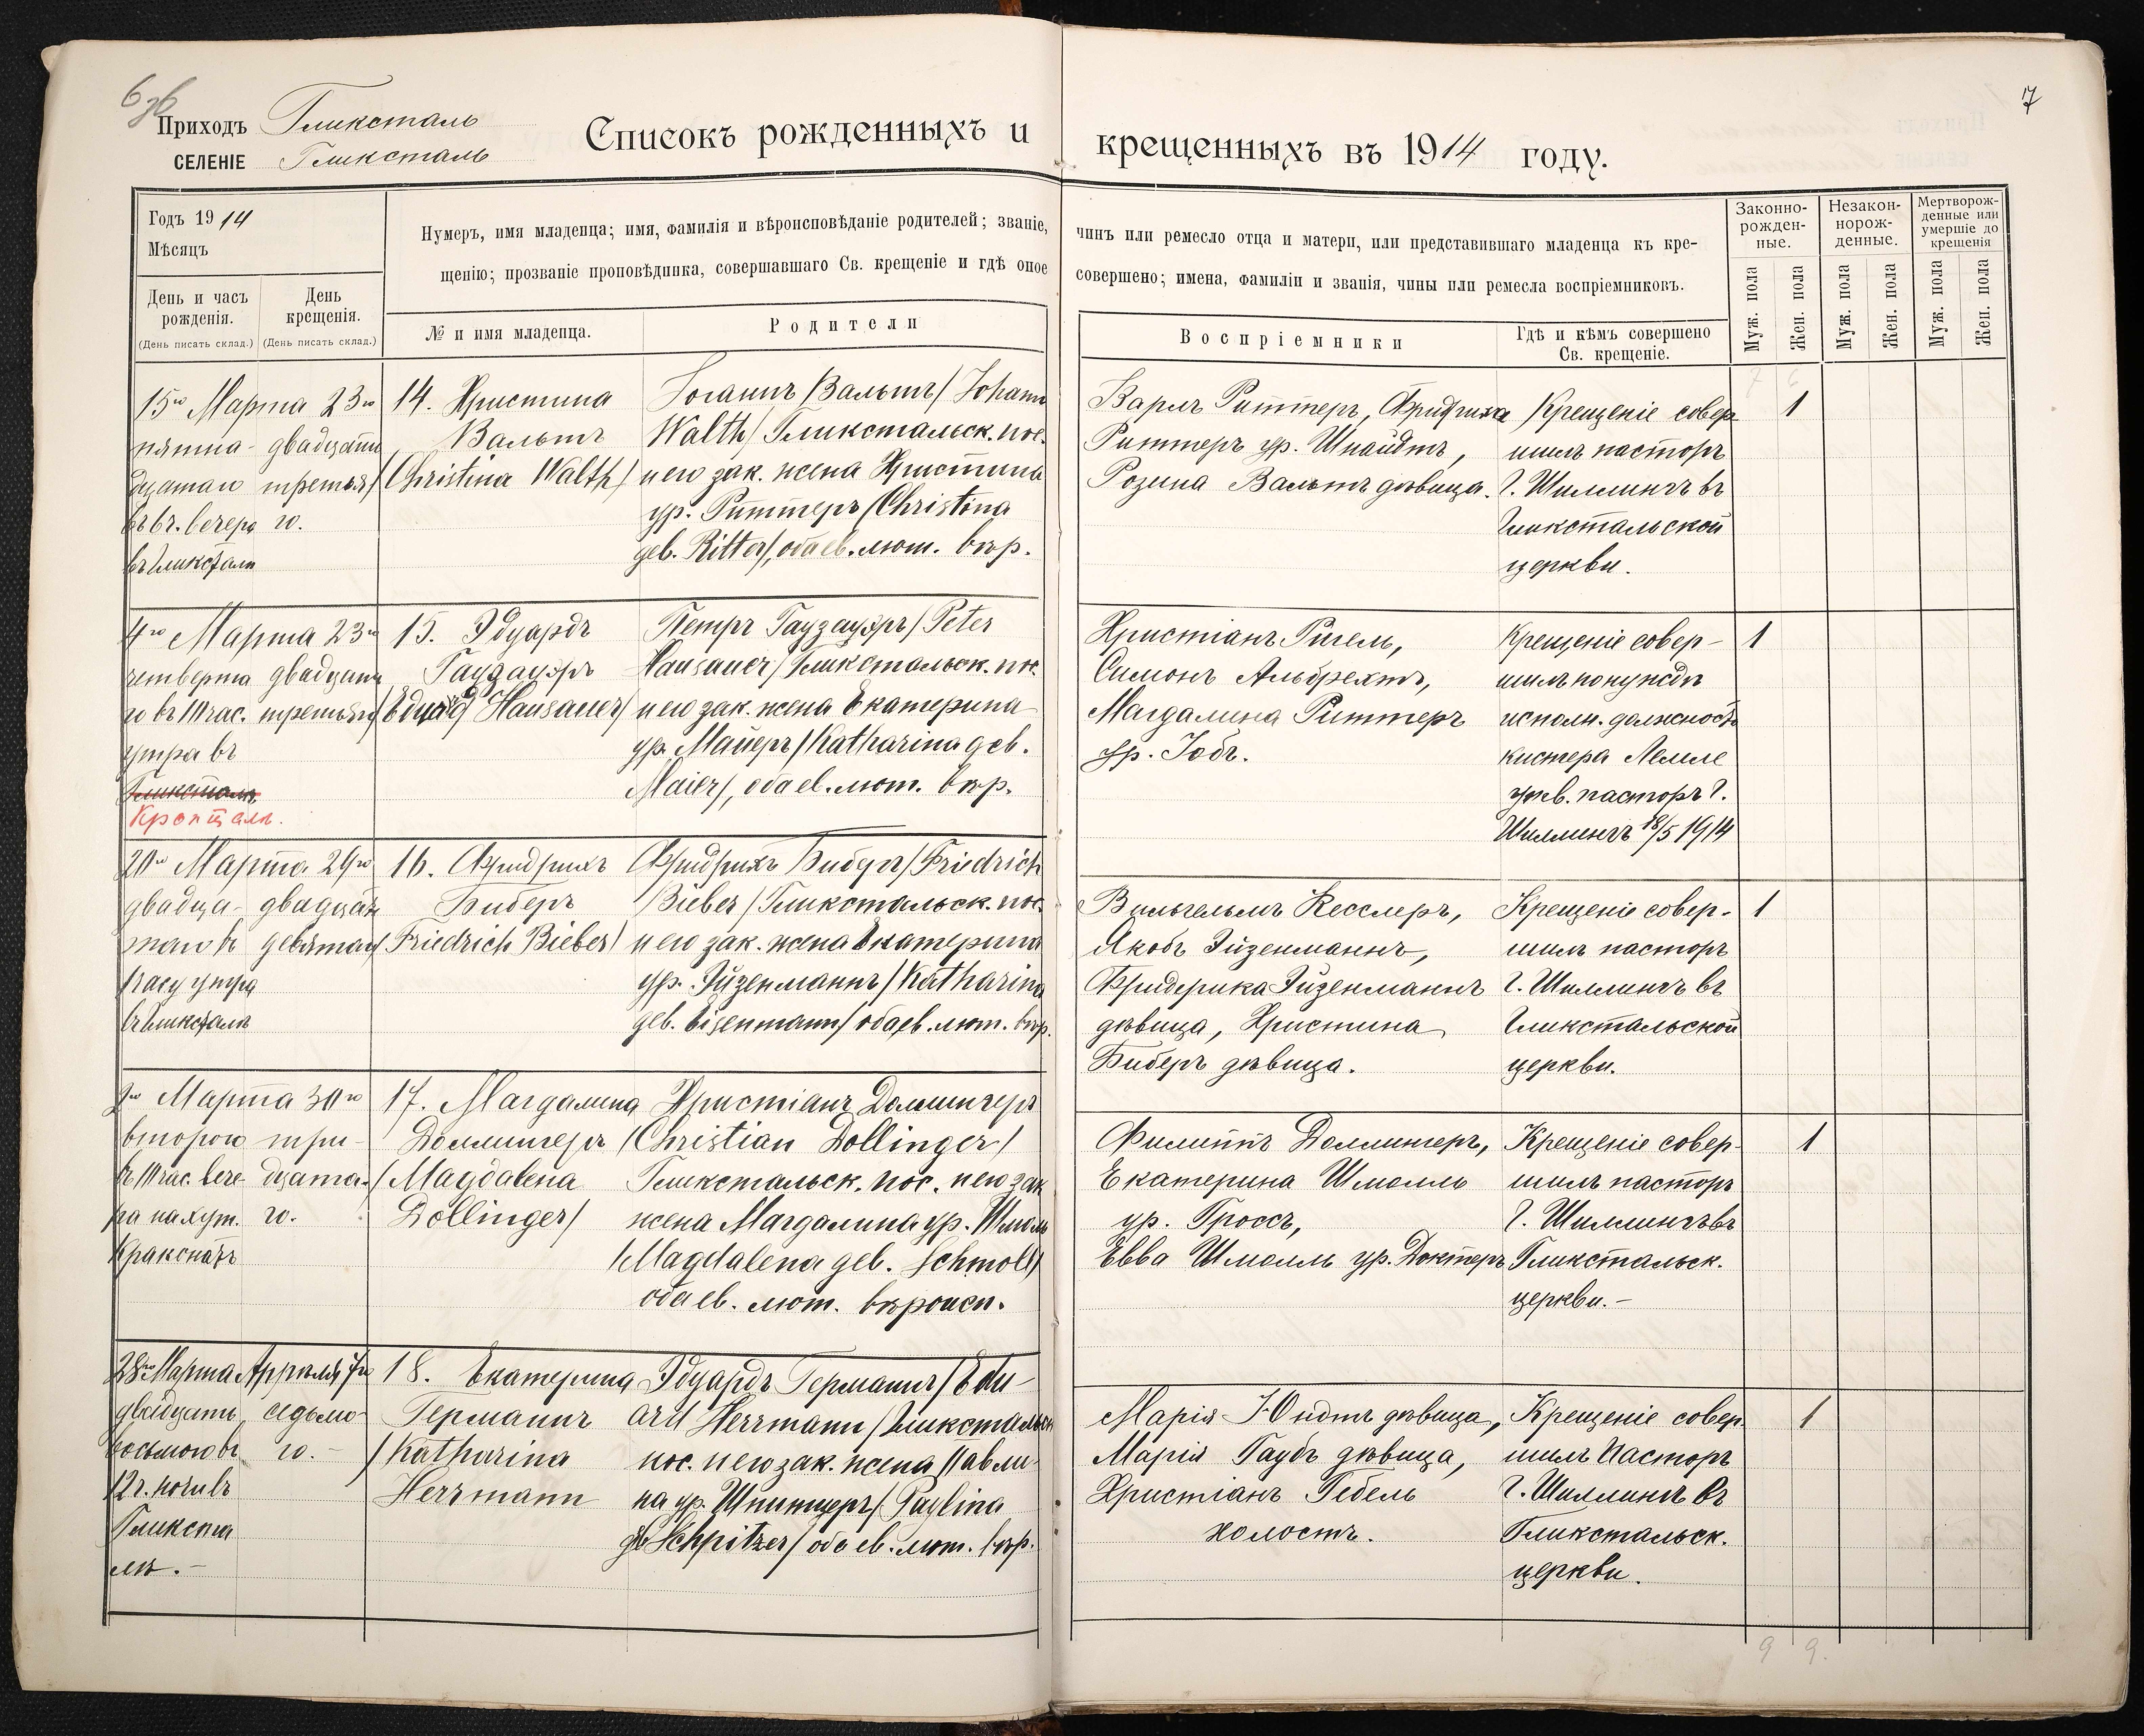 6зб
7
Приходъ Гликсталь
СЕЛЕНІЕ Гликсталь
Списокъ рожденныхъ и крещенныхъ въ 1914 году.
Годъ 1914
Мѣсяцъ
День и часъ рожденія.
(День писать склад.)
День крещенія.
(День писать склад.)
Нумеръ, имя младенца; имя, фамилія и вѣроисповѣданіе родителей; званіе, чинъ или ремесло отца и матери, или представившаго младенца къ кре-
щенію; прозваніе проповѣдника, совершавшаго Св. крещеніе и гдѣ оное совершено; имена, фамиліи и званія, чины или ремесла воспріемниковъ.
№ и имя младенца.
Родители
Воспріемники
Гдѣ и кѣмъ совершено
Св. крещеніе.
Законно-
рожден-
ные.
Незакон-
норож-
денные.
Мертворож-
денные или
умершіе до
крещенія
Муж. пола
Жен. пола
Муж. пола
Жен. пола
Муж. пола
Жен. пола
7 6
15го Марта
пятна-
дцатаго
въ 6ч. вечера
въ Гликстали
23го
двадцать
третья
го.
14. Христина
Вальтъ
/Christina Walth/
Іоганнъ Вальтъ/Johann
Walth/ Гликстальск. пос.
и его зак. жена Христина
ур. Риттеръ/Christina
geb. Ritter/, оба ев. лют. вѣр.
Карлъ Риттеръ, Фридрика
Риттеръ ур. Шнайдтъ,
Розина Вальтъ дѣвица.
Крещеніе совер-
шилъ пасторъ
Г. Шиллингъ въ
Гликстальской
церкви.
1
4го Марта
четверта
го въ 11 час.
утра въ
Гликсталѣ
Кронталь.
23го
двадцать
третьяго
15. Эдуардъ
Гаузауэръ
/Eduard Hausauer/
Петръ Гаузауэръ/Peter
Hausauer/ Гликстальск. пос.
и его зак. жена Екатерина
ур. Майеръ/Katharina geb.
Maier/, оба ев. лют. вѣр.
Христіанъ Ригель,
Симонъ Альбрехтъ,
Магдалина Риттеръ
ур. Іобъ.
Крещеніе совер-
шилъ по нуждѣ
исполн. должность
кистера Лемле
утв. пасторъ Г.
Шиллингъ 18/5 1914
1
20го Марта
двадца-
таго въ
1 часу утра
въ Гликсталѣ
29го
двадцать
девятаго
16. Фридрихъ
Биберъ
Friedrich Bieber/
Фридрихъ Биберъ/Friedrich
Bieber/ Гликстальск. пос.
и его зак. жена Екатерина
ур. Эйзенманнъ/Katharina
geb. Eisenmann/ оба ев. лют. вѣр.
Вильгельмъ Кесслеръ,
Якобъ Эйзенманнъ,
Фридерика Эйзенманнъ
дѣвица, Христина
Биберъ дѣвица.
Крещеніе совер-
шилъ пасторъ
Г. Шиллингъ въ
Гликстальской
церкви.
1
2го Марта
второго
въ 11 час. вече-
ра на хут.
30го
три-
дцата-
го.
17. Магдалина
Доллингеръ
/Magdalena
Dollinger/
Христіанъ Доллингеръ
/Christian Dollinger/
Гликстальск. пос. и его зак
жена Магдалина ур. Шмолль
/Magdalena geb. Schmoll/
оба ев. лют. вѣроисп.
Филиппъ Доллингеръ,
Екатерина Шмолль
ур. Гроссъ,
Евва Шмолль ур. Докторъ
Крещеніе совер-
шилъ пасторъ
Г. Шиллингъ въ
Гликстальск.
церкви.-
1
28го Марта
двадцать
восьмого въ
12 ч. ночи въ
Гликста
лѣ.-
Апрѣля 7го
седьмо-
го.-
18. Екатерина
Германнъ
/Katharina
Herrmann
Эдуардъ Германнъ/Edu-
ard Herrmann/ Гликстальск
пос. и его зак. жена Павли-
на ур. Шпитцеръ/Paulina
geb Schpitzer/ оба ев. лют. вѣр.
Марія Юндтъ дѣвица,
Марія Гаубъ дѣвица,
Христіанъ Гебель
холостъ.
Крещеніе совер-
шилъ Пасторъ
Г. Шиллингъ въ
Гликстальск.
церкви.
1
9 9.